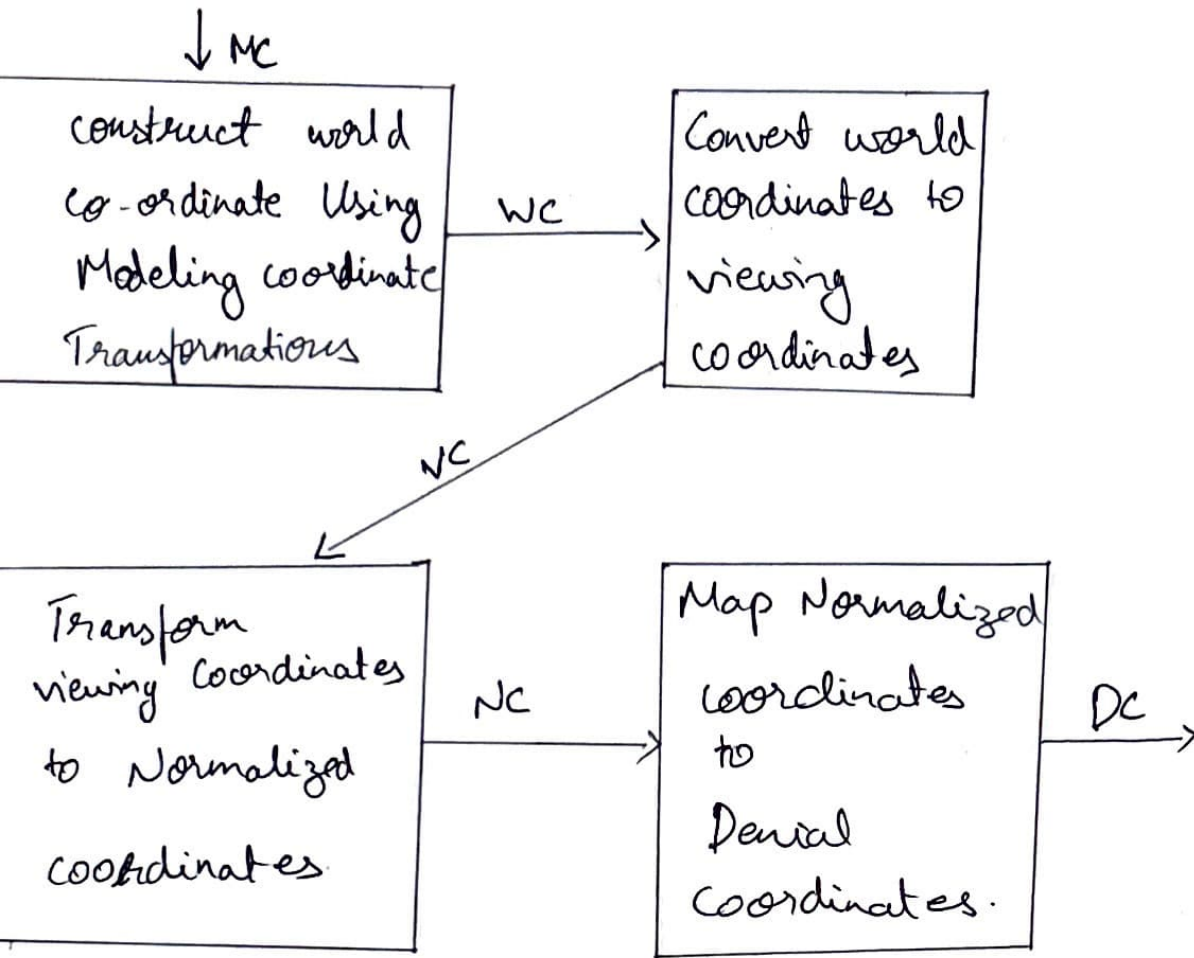 MC
construct world
co-ordinate Using
Modeling coordinate
Transformations
WC
Convert world
coordinates to
viewing
coordinates
VC
Transform
viewing Coordinates
to Normalized
coordinates.
NC
Map Normalized
coordinates
to
Denial
Coordinates.
DC